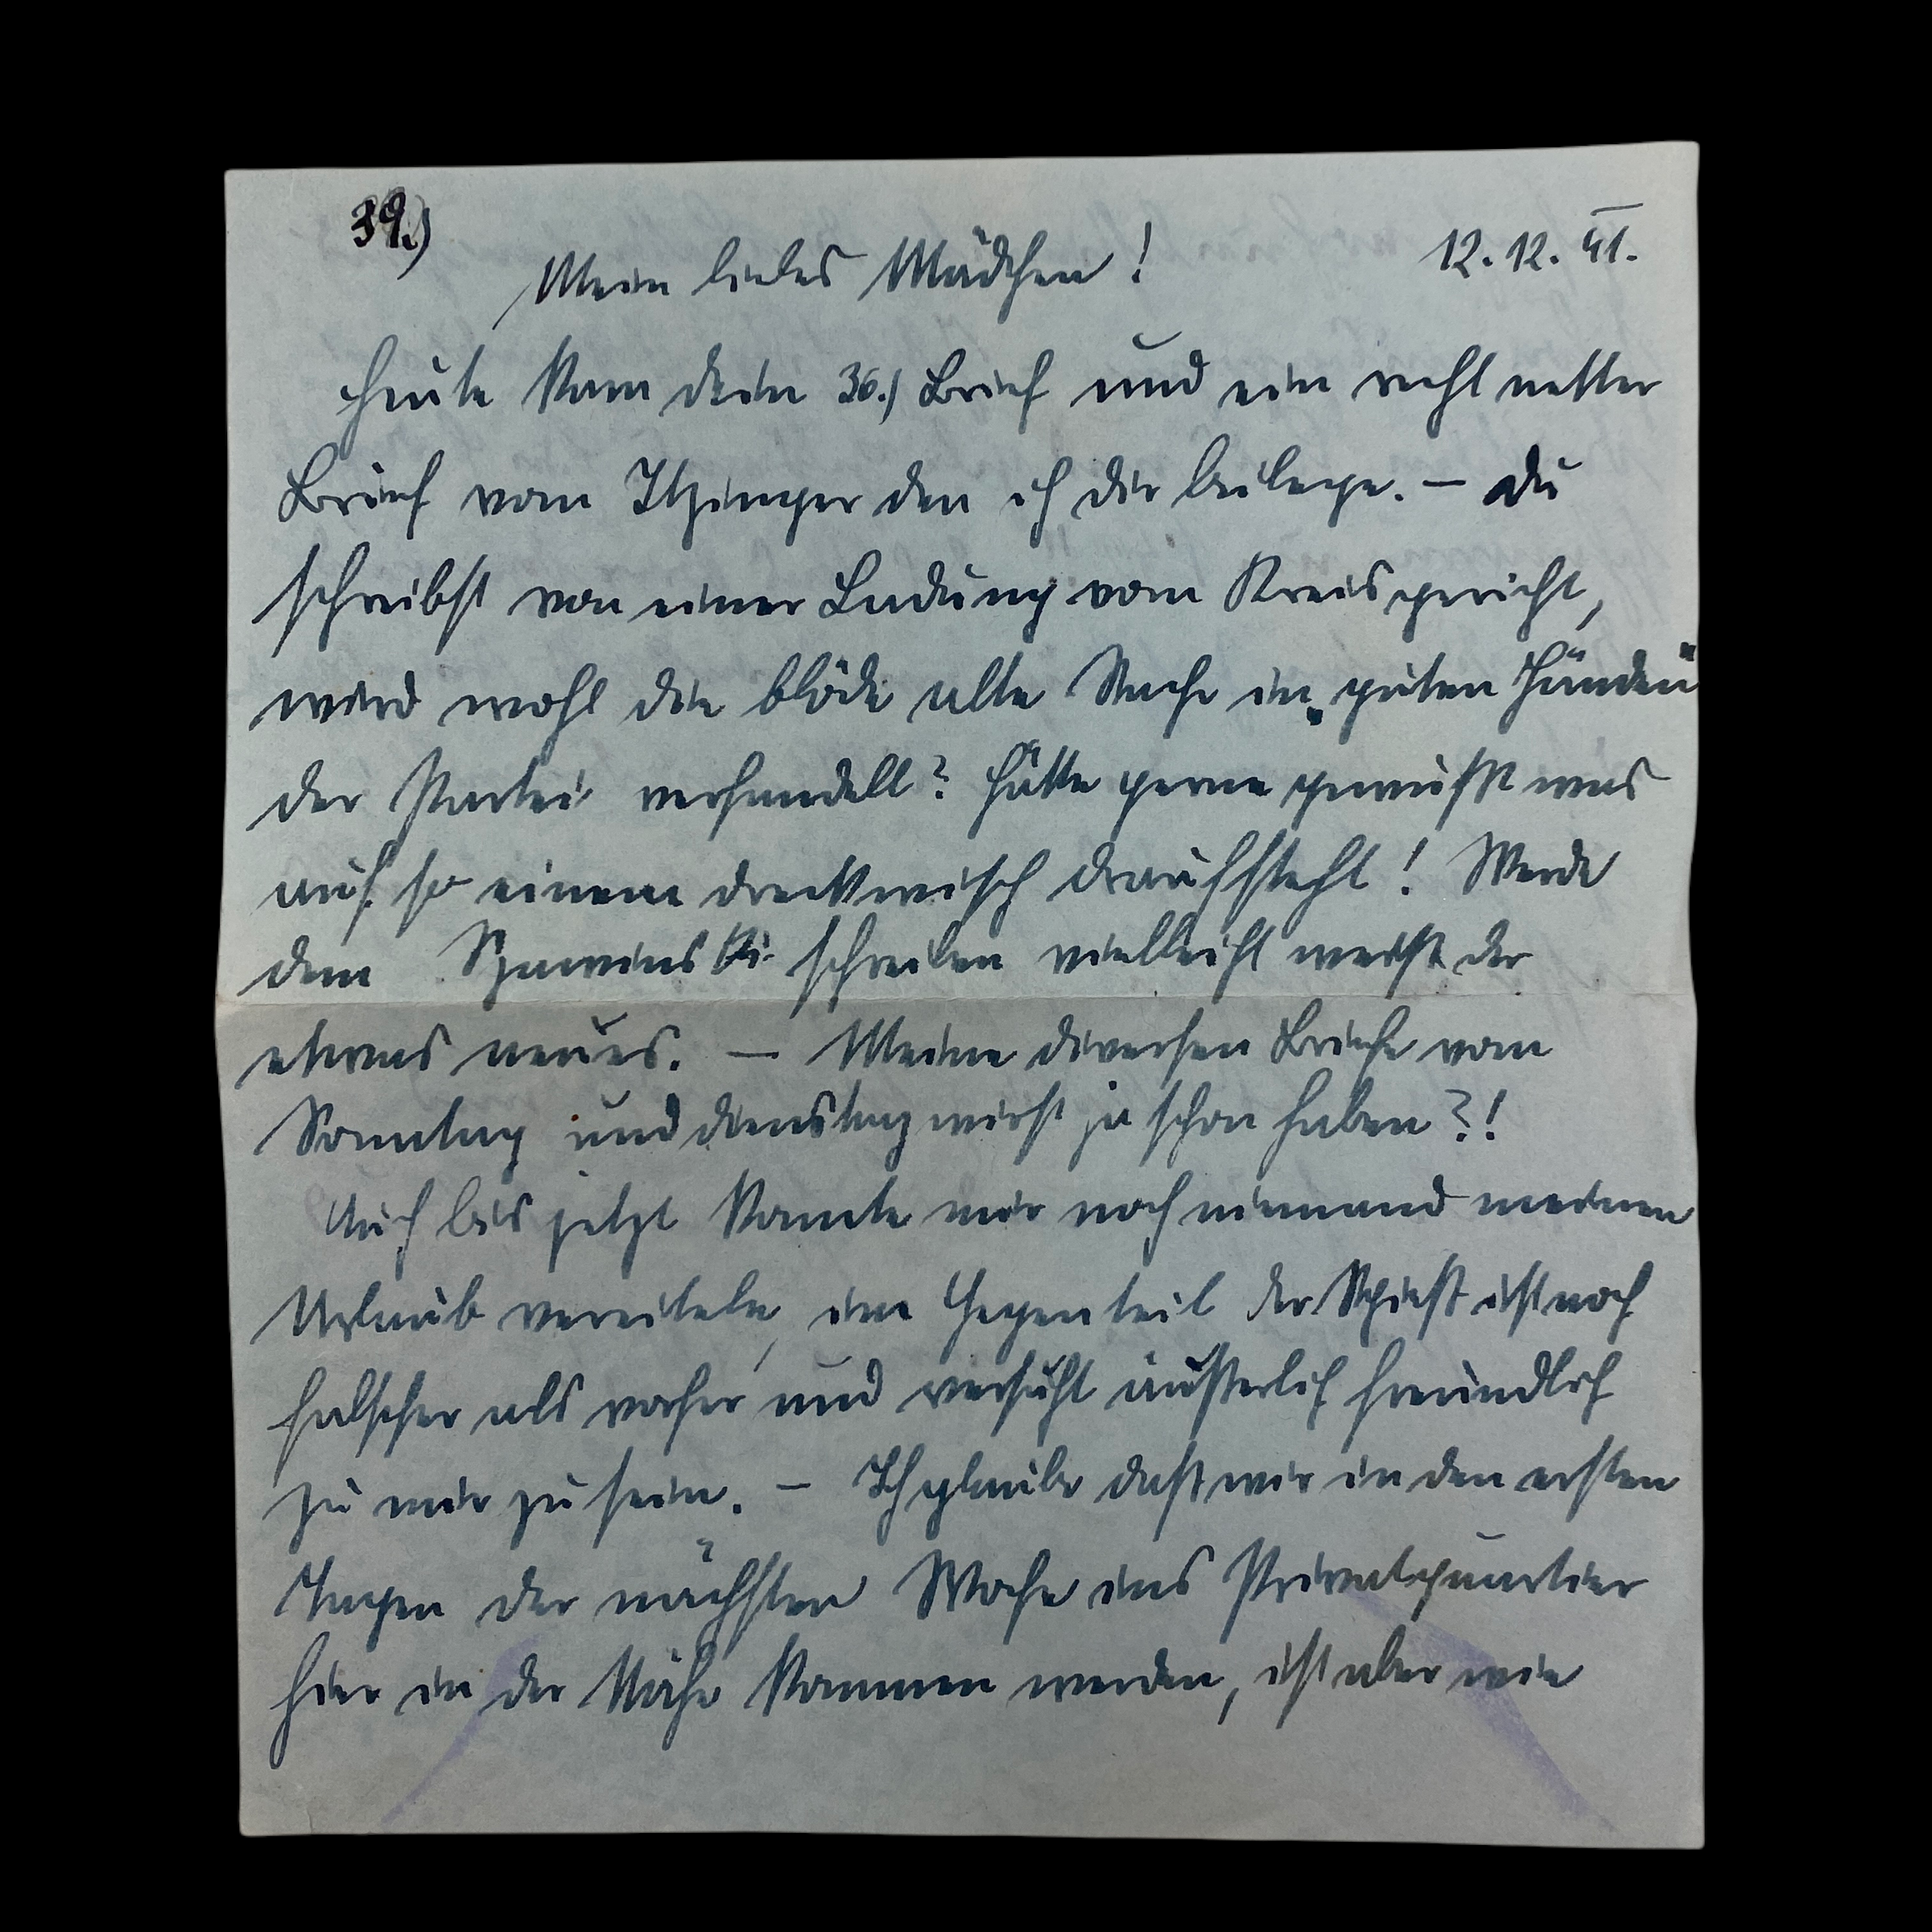 39.)
12.12.41.
Mein liebes Mädchen!
Heute kam dein 36.) Brief und ein recht netter
Brief vom Itzinger den ich dir beilege. – Du
schreibst von einer Ladung vom Kreisgericht,
wird wohl die blöde alte Sache in „guten Händen"
der Partei verhandelt? Hätte gerne gewußt was
auf so einem Dreckwisch draufsteht! Werde
dem schreiben vielleicht weiß der
etwas neues. – Meine diversen Briefe vom
Sonntag und Dienstag wirst ja schon haben?!
Auch bis jetzt konnte mir noch niemand meinen
Urlaub vereiteln, im Gegenteil der Spieß ist noch
falscher als vorher und versucht äußerlich freundlich
zu mir zu sein. – Ich glaube daß wir in den ersten
Tagen der nächsten Woche ins Privatquartier
hier in der Nähe kommen werden, ist aber wie